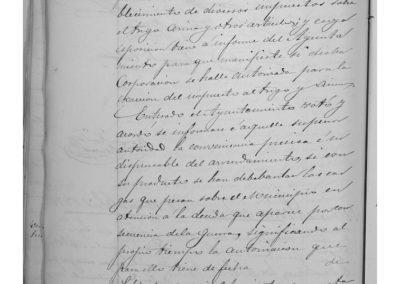 blecimiento de diversos impuestos sobre
el trigo harina y otros articulos; y cuya
esposicion tiene á informe del Ayunta
miento para que manifieste si dicha
Corporacion se halla autorizada para la
esaccion del impuesto al trigo y harina
Enterado el Ayuntamiento votó y
acordo se informase á aquella superior
autoridad la conveniencia precisa é in
dispensable del arrendamiento, si con
su producto se han de lebantar las car
gas que pesan sobre el Municipio en
atencion á la deuda que aparece por con
secuencia de la Guerra, significando al
propio tiempo la autorizacion que
para ello tiene de fecha de